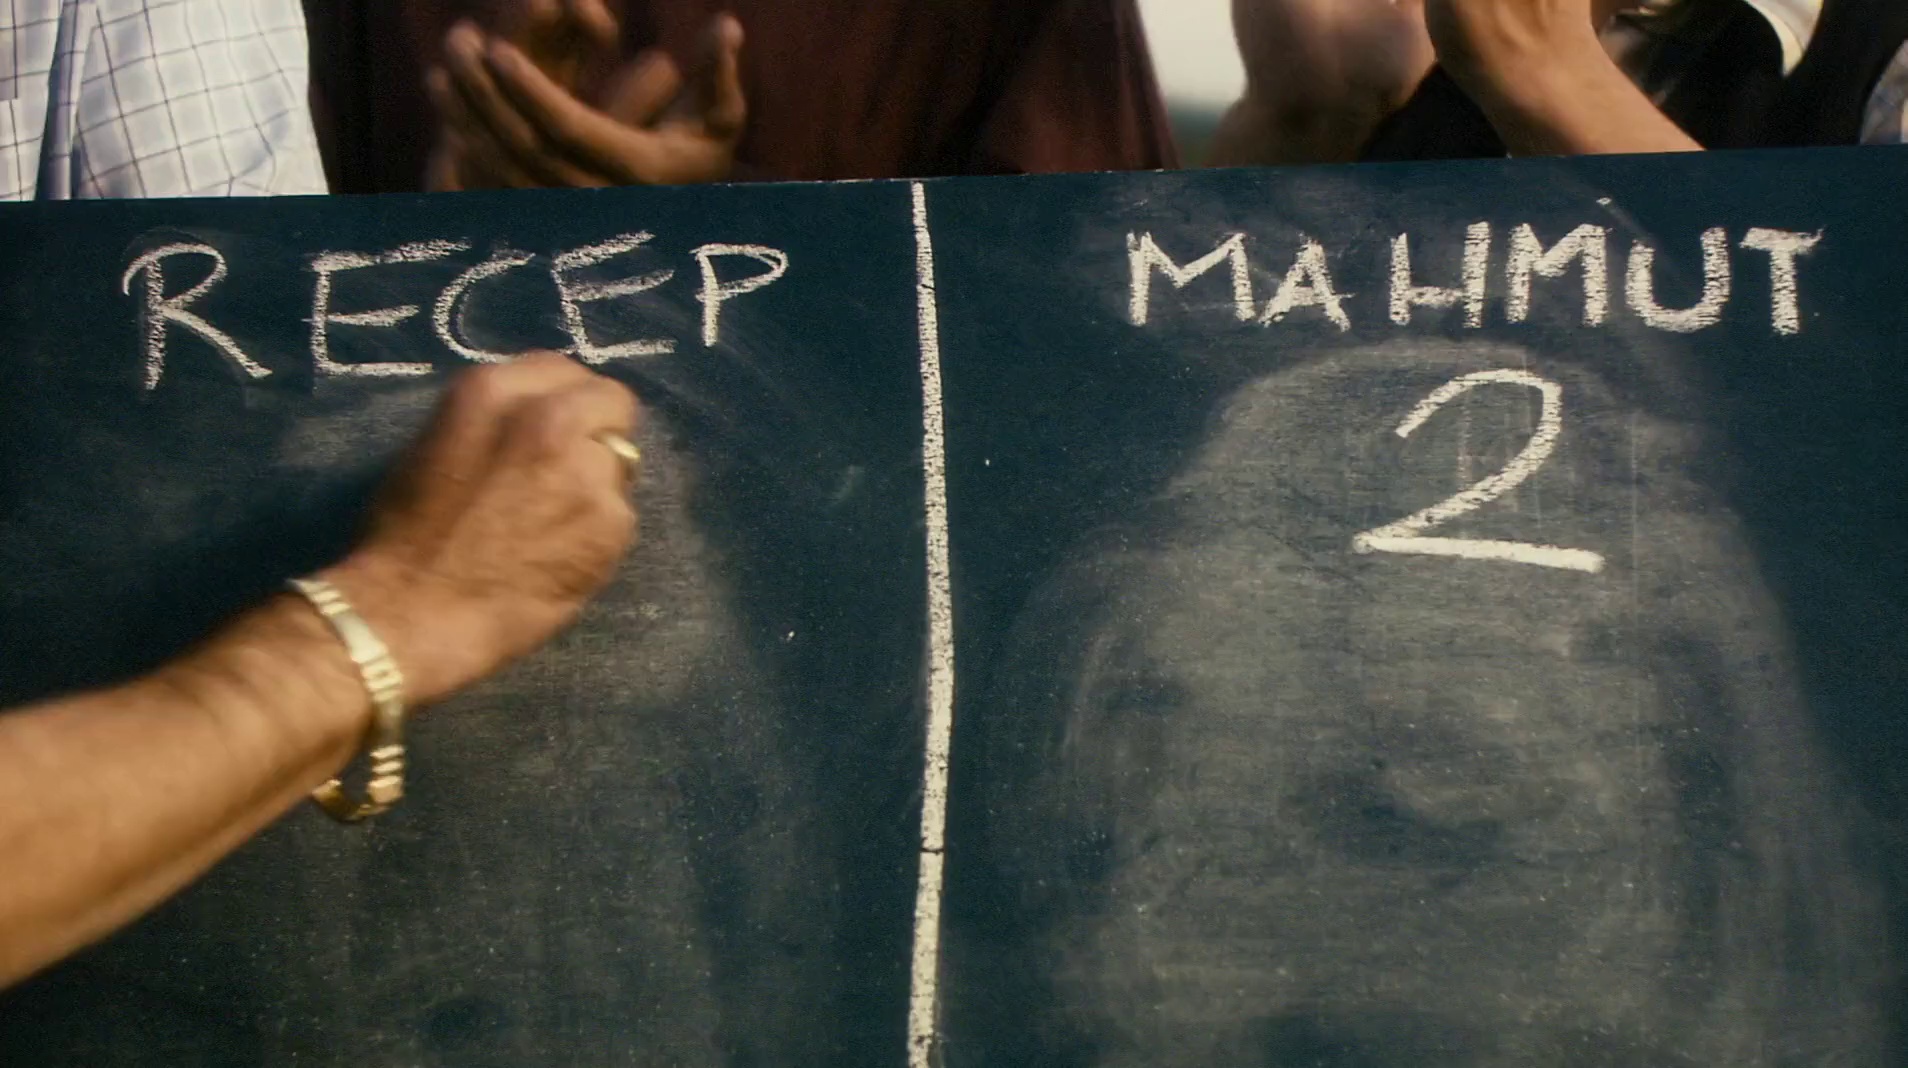 RECEP
MAHMUT
2